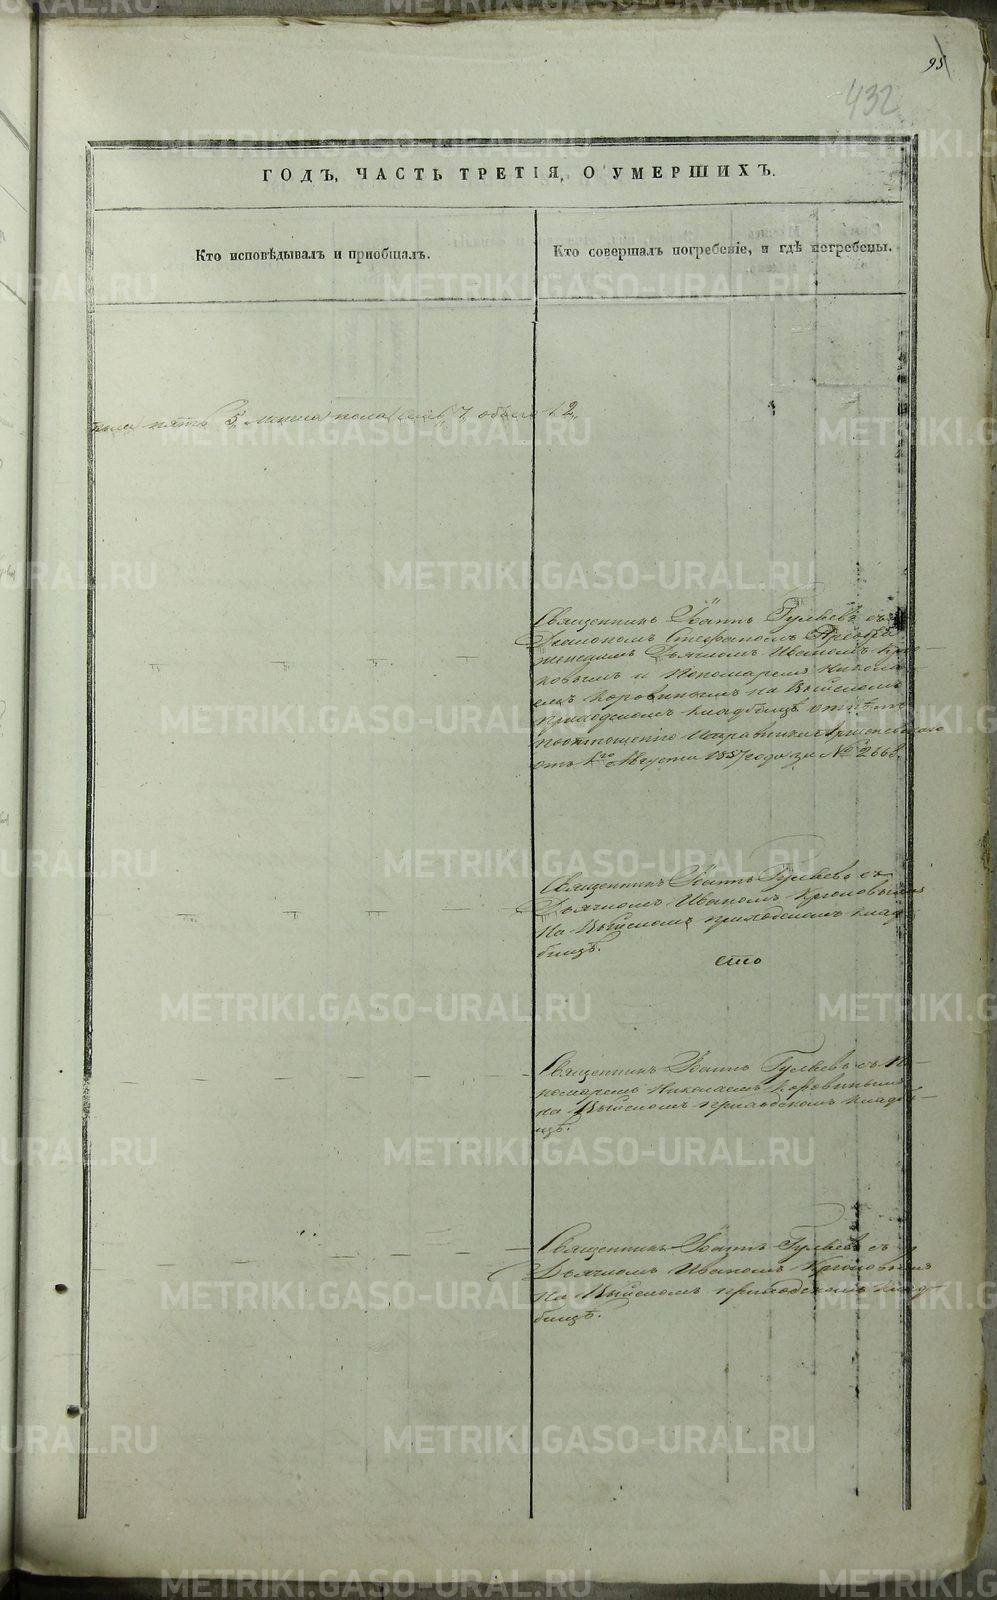 95
432
ГОДЪ, ЧАСТЬ ТРЕТІЯ, О УМЕРШИХЪ.
Кто исповѣдывалъ и пріобщалъ.
Кто совершалъ погребеніе, и гдѣ погребены.
пола пять 5, женска пола семь 7, обоего 12,
Священникъ Іоаннъ Гуляевъ съ
Діакономъ Стефаномъ
Дьячкомъ Иваномъ Крю-
ковымъ и Пономаремъ Никола-
емъ Коровинымъ на Выйскомъ
приходскомъ кладбищѣ
отношенію Исправника
отъ Августа 1857 года за № 2668.
Священникъ Іоаннъ Гуляевъ съ
Дьячкомъ Иваномъ Крюковымъ
на Выйскомъ приходскомъ клад-
бищѣ.
сто
Священникъ Іоаннъ Гуляевъ съ По-
номаремъ Николаемъ Коровинымъ
на Выйскомъ приходскомъ кладби-
щѣ.
Священникъ Іоаннъ Гуляевъ съ
Дьячкомъ Иваномъ Крюковымъ
на Выйскомъ приходскомъ клад-
бищѣ.
METRIKI.GASO-URAL.RU